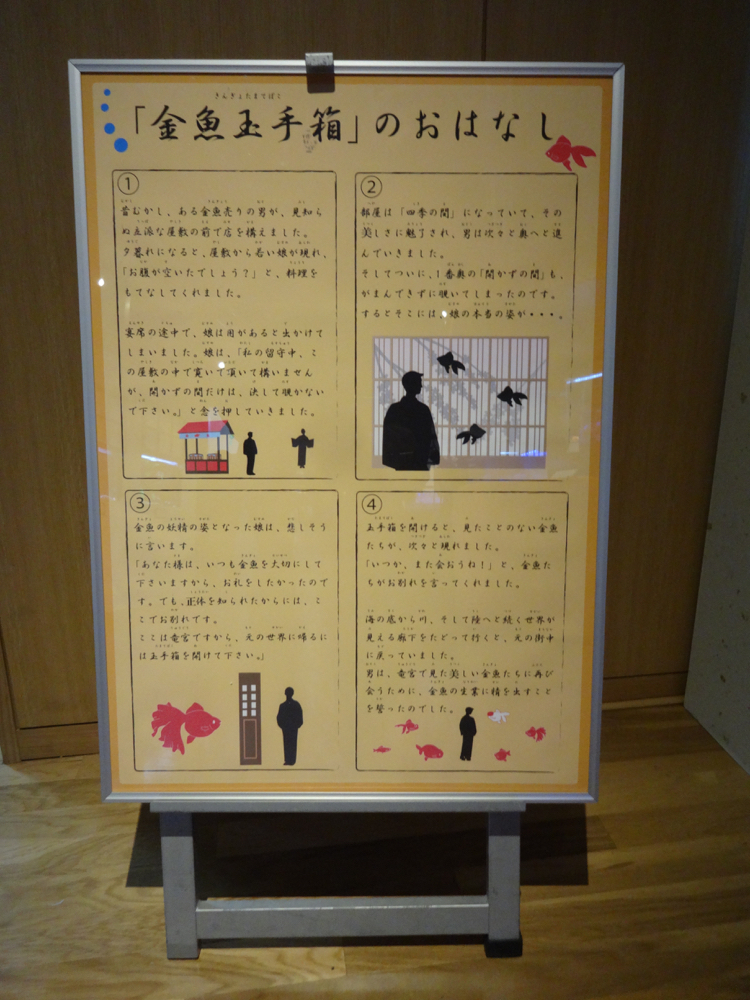 「金魚玉手箱」のおはなし
きんぎょたまてばこ
①
昔むかし、ある金魚売りの男が、見知ら
ぬ立派な屋敷の前で店を構えました。
夕暮れになると、屋敷から若い娘が現れ、
「お腹が空いたでしょう？」と、料理を
もてなしてくれました。
宴席の途中で、娘は用があると出かけて
しまいました。娘は、「私の留守中、こ
の屋敷の中で寛いで頂いて構いません
が、開かずの間だけは、決して覗かない
で下さい。」と念を押していきました。
②
部屋は「四季の間」になっていて、その
美しさに魅了され、男は次々と奥へと進
んでいきました。
そしてついに、1番奥の「開かずの間」も、
がまんできずに覗いてしまったのです。
するとそこには、娘の本当の姿が・・・。
③
金魚の妖精の姿となった娘は、悲しそう
に言います。
「あなた様は、いつも金魚を大切にして
下さいますから、お礼をしたかったので
す。でも、正体を知られたからには、こ
こでお別れです。
ここは竜宮ですから、元の世界に帰るに
は玉手箱を開けて下さい。」
④
玉手箱を開けると、見たことのない金魚
たちが、次々と現れました。
「いつか、また会おうね！」と、金魚た
ちがお別れを言ってくれました。
海の底から川、そして陸へと続く世界が
見える廊下をたどって行くと、元の街中
に戻っていました。
男は、竜宮で見た美しい金魚たちに再び
会うために、金魚の生業に精を出すこと
を誓ったのでした。